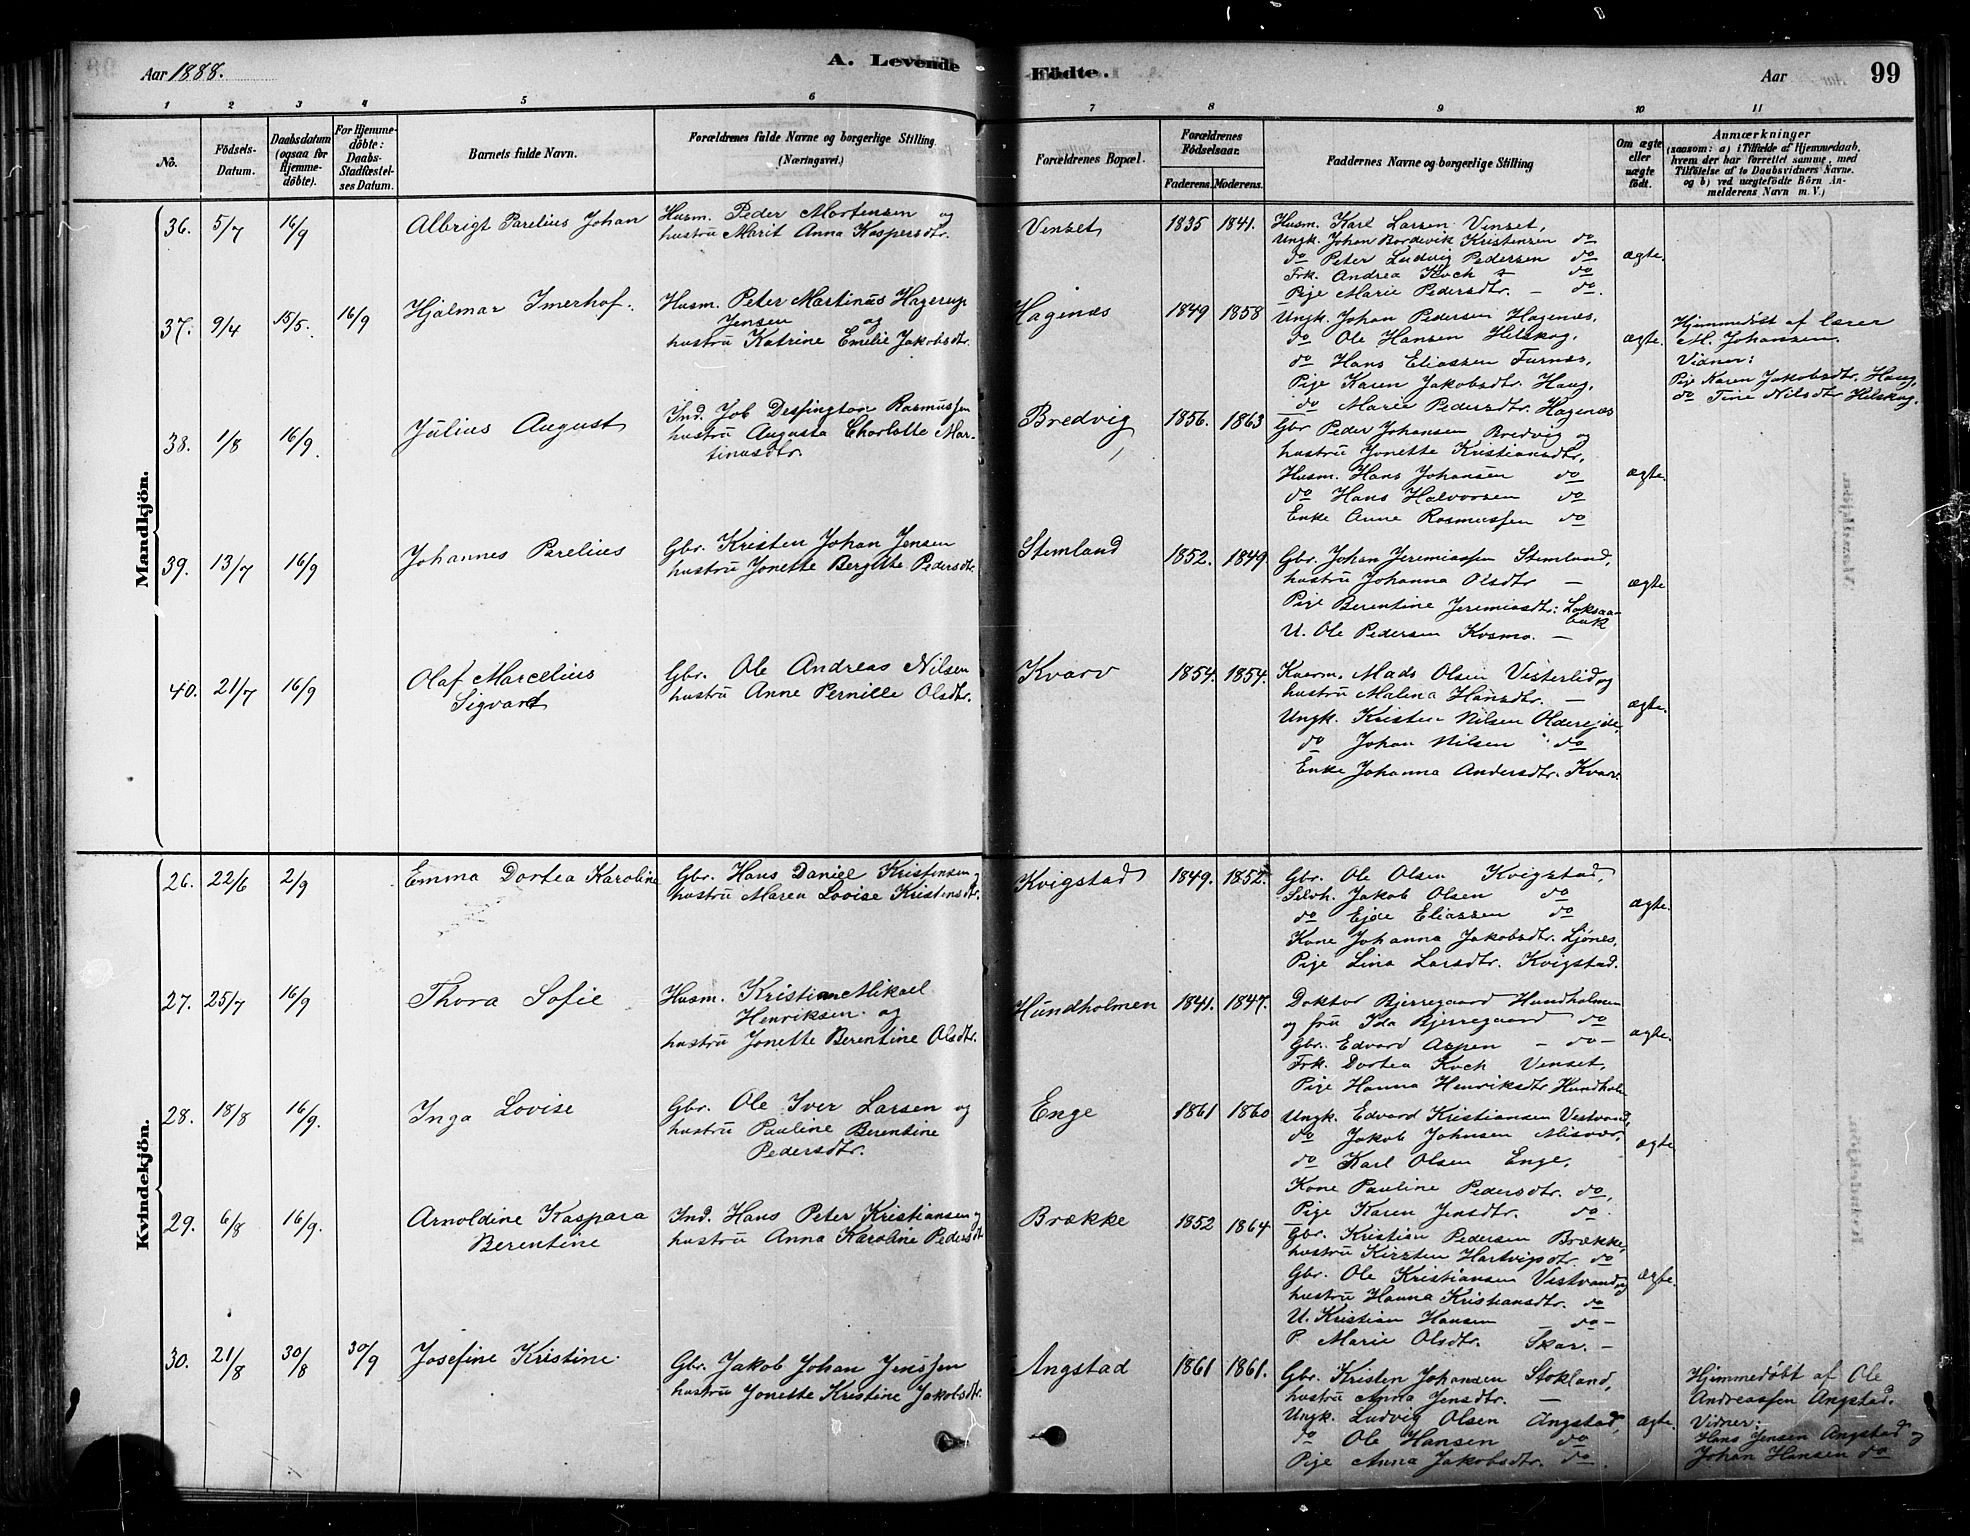 Aar 1888.
A. Levende Födte.
Aar
99
1 2 3 4 5 6 7 8 9 10 11
No.
Födsels-Datum.
Daabsdatum (ogsaa for Hjemmedöbte).
For Hjemmedöbte: Daabs-Stadfæstelses Datum.
Barnets fulde Navn.
Forældrenes fulde Navne og borgerlige Stilling. (Næringsvei.)
Forældrenes Bopæl.
Forældrenes Födselsaar.
Faderens. Moderens.
Faddernes Navne og borgerlige Stilling
Om ægte eller uægte födt.
Anmærkninger
(saasom: a) i Tilfælde af Hjemmedaab, hvem der har forrettet samme, med Tilföielse af to Daabsvidners Navne. og b) ved uægtefödte Börn Anmelderens Navn m. V.)
Mandkjön.
36. 5/7 16/9 Albrigt Parelius Johan
Husm. Peder Mortensen og
hustru Marit Anna Kaspersdtr.
Venset 1835 1841.
Husm. Karl Larsen Venset,
Ungk. Johan Bordevik Kristensen do
do Peter Ludvig Pedersen do
Frk. Andrea Koch - do
Pige Marie Pedersdtr. - do.
ægte.
37. 9/4 15/5. 16/9 Hjalmar Imerhof.
Husm. Peter Martinus Hagerup
Jensen og
hustru Katrine Emelie Jakobsdtr.
Hagenæs 1849 1858
Ungk. Johan Pedersen Hagenæs,
do Ole Hansen Helskog,
do Hans Eliassen Furnes,
Pige Karen Jakobsdtr. Haug,
do Marie Pedersdtr. Hagenæs
ægte.
Hjemmedöbt af lærer
M. Johansen.
Vidner:
Pige Karen Jakobsdtr. Haug,
do Tine Nilsdtr. Helskog.
38. 1/8 16/9. Julius August
Ind. Job Desfington Rasmussen
hustru Augusta Charlotte Mar-
tinusdtr.
Bredvig 1856. 1863
Gbr Peder Johansen Bredvig og
hustru Jonette Kristiansdtr,
Husm. Hans Johansen do
do Hans Halvorsen do
Enke Anne Rasmussen do
ægte.
39. 13/7 16/9 Johannes Parelius
Gbr. Kristen Johan Jensen
hustru Jonette Bergitte Pedersdtr.
Stemland 1852. 1849
Gbr. Johan Jeremiassen Stemland,
hustru Johanna Olsdtr —
Pige Berentine Jeremiasdtr:
U. Ole Pedersen Kosmo. —
ægte
40. 21/7 16/9 Olaf Marcelius
Sigvart
Gbr. Ole Andreas Nilsen
hustru Anne Pernille Olsdtr.
Kvarv 1854. 1854.
Mads Olsen Vesterli og
hustru Malena Hansdtr. —
Ungk. Kristen Nilsen Oldereide,
do Johan Nilsen do
Enke Johanna Andersdtr. Kvarv.
ægte.
Kvindekjön.
26. 22/6 2/9 Emma Dortea Karoline
Gbr. Hans Daniel Kristensen og
hustru Maren Lovise Kristensdtr.
Kvigstad 1849. 1852.
Gbr. Ole Olsen Kvigstad,
Selvh. Jakob Olsen do
do Ejde Eliassen do
Kone Johanna Jakobsdtr. Ljönes,
Pige Lina Larsdtr. Kvigstad.
ægte.
27. 25/7 16/9 Thora Sofie
Husm. Kristian Mikael
Henriksen. og
hustru Jonette Berentine Olsdtr.
Hundholmen 1841. 1847.
Doktor Bjerregaard Hundholmen
og fru Ida Bjerregaard do
Gbr. Edvard Aspen - do -
Frk. Dortea Koch Venset,
Pige Hanna Henriksdtr Hundholm
ægte.
28. 18/8 16/9. Inga Lovise
Gbr. Ole Iver Larsen og
hustru Pauline Berentine
Pedersdtr.
Enge 1861 1860
Ungk. Edvard Kristiansen Vestvand,
do Jakob Johnsen Misvær,
do Karl Olsen Enge,
Kone Pauline Pedersdtr. do,
Pige Karen Jensdtr. do.
ægte
29. 6/8 16/9. Arnoldine Kaspara
Berentine
Ind. Hans Peter Kristiansen og
hustru Anna Karoline Pedersdt
Brække 1852 1864
Gbr. Kristian Pedersen Brække,
hustru Kirsten Hartvigsdtr. do
Gbr. Ole Kristiansen Vestvand og
hustru Hanna Kristiansdtr. do
U. Kristian Hansen do -
P. Marie Olsdtr. Skar. -
ægte.
30. 21/8 30/8 30/9 Josefine Kristine.
Gbr. Jakob Johan Jenssen
hustru Jonette Kristine Jakobsdtr.
Angstad 1861 1861.
Gbr. Kristen Johansen Stokland,
hustru Anna Jensdtr. —
Ungk. Ludvig Olsen Angstad,
do Ole Hansen do
Pige Anna Jakobsdtr. do.
ægte.
Hjemmedöbt af Ole
Andreassen Angstad.
Vidner:
Hans Jensen Angstad og
Johan Hansen do